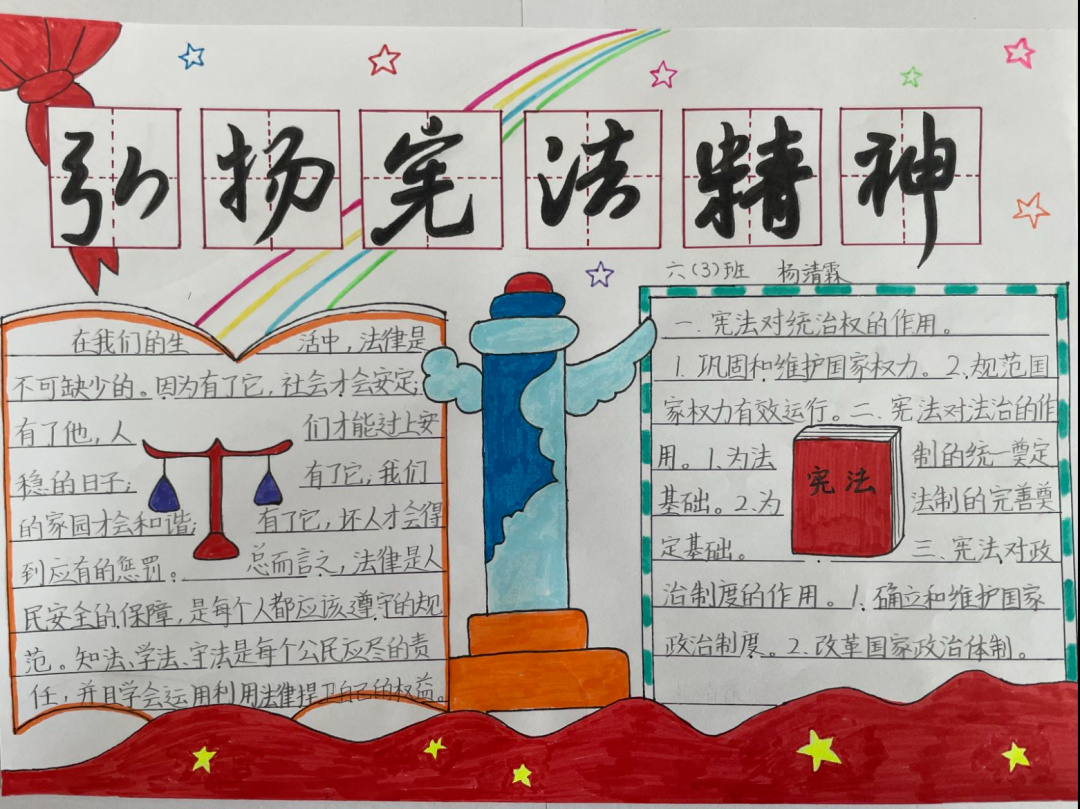 弘扬宪法精神
六(3)班 杨清霖
在我们的生活中,法律是
不可缺少的。因为有了它,社会才会安定;
有了他,人们才能过上安
稳的日子;有了它,我们
的家园才会和谐;有了它,坏人才会得
到应有的惩罚。总而言之,法律是人
民安全的保障,是每个人都应该遵守的规
范。知法、学法、守法是每个公民应尽的责
任,并且学会运用利用法律捍卫自己的权益。
一.宪法对统治权的作用。
1.巩固和维护国家权力。2.规范国
家权力有效运行。二.宪法对法治的作
用。1.为法制的统一奠定
基础。2.为法制的完善奠
定基础。三.宪法对政
治制度的作用。1.确立和维护国家
政治制度。2.改革国家政治体制。
宪法